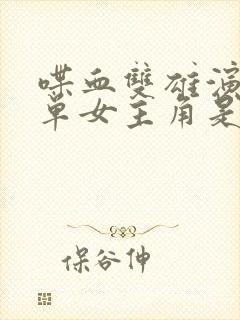 喋血雙雄演
單女主角是
保谷伸